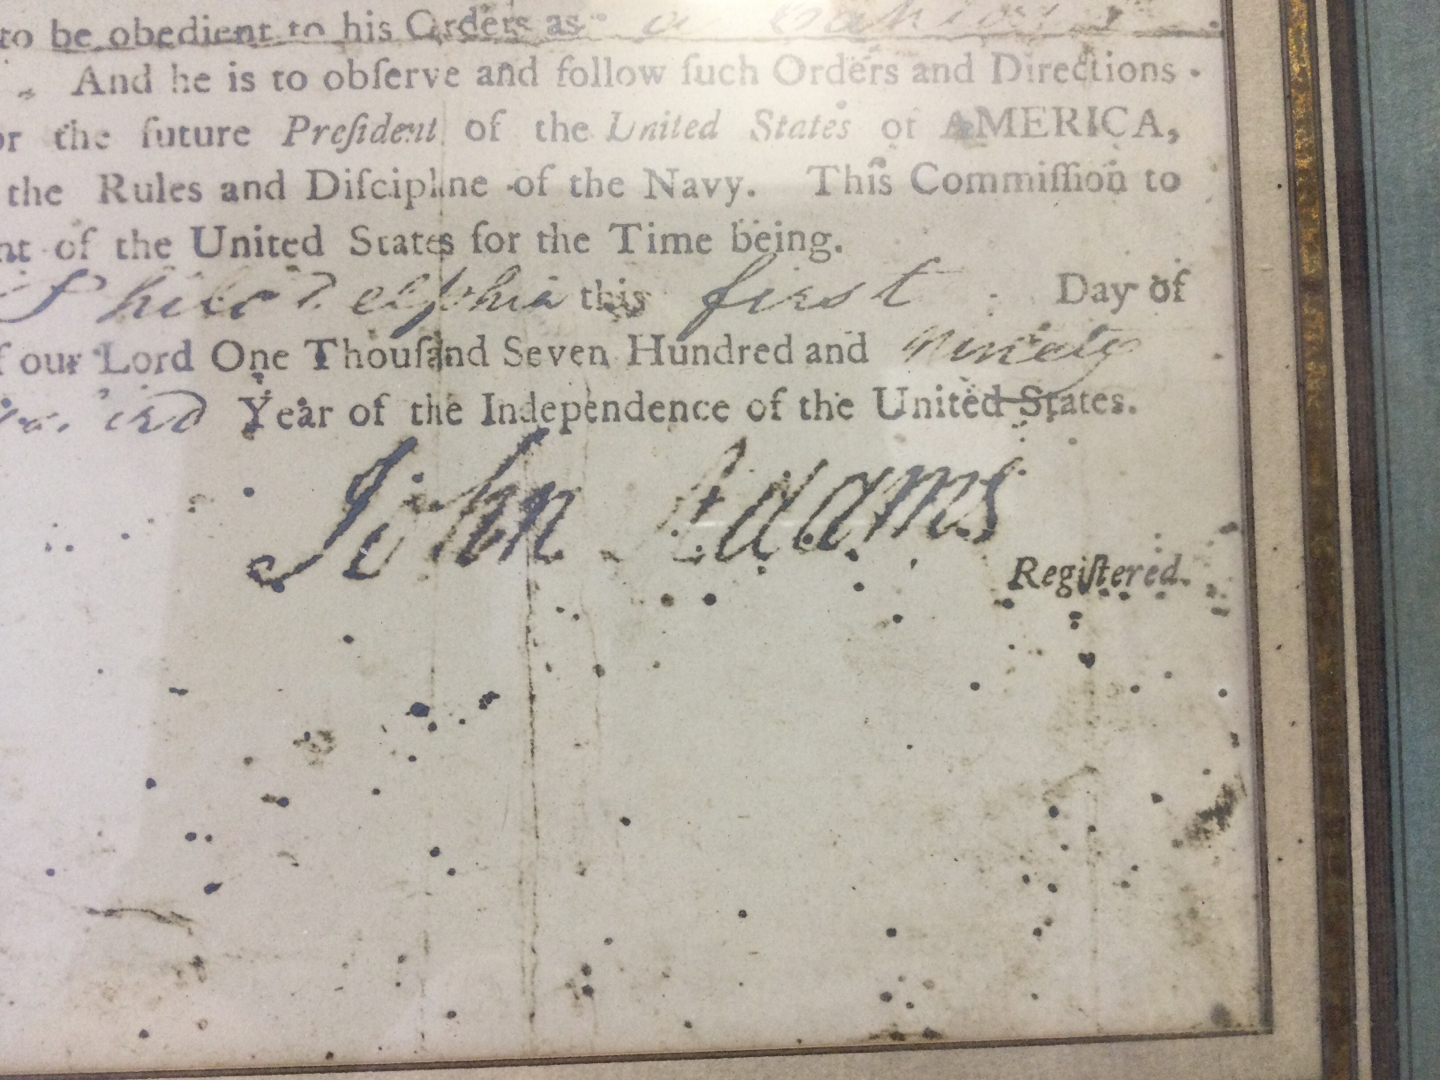 to be obedient to his Orders as a
And he is to obſerve and follow ſuch Orders and Directions
or the future Preſident of the United States of AMERICA,
the Rules and Diſcipline of the Navy. This Commiſſion to
nt of the United States for the Time being.
Philadelphia this first Day of
f our Lord One Thouſand Seven Hundred and ninety
Year of the Independence of the United States.
John Adams
Regiſtered.